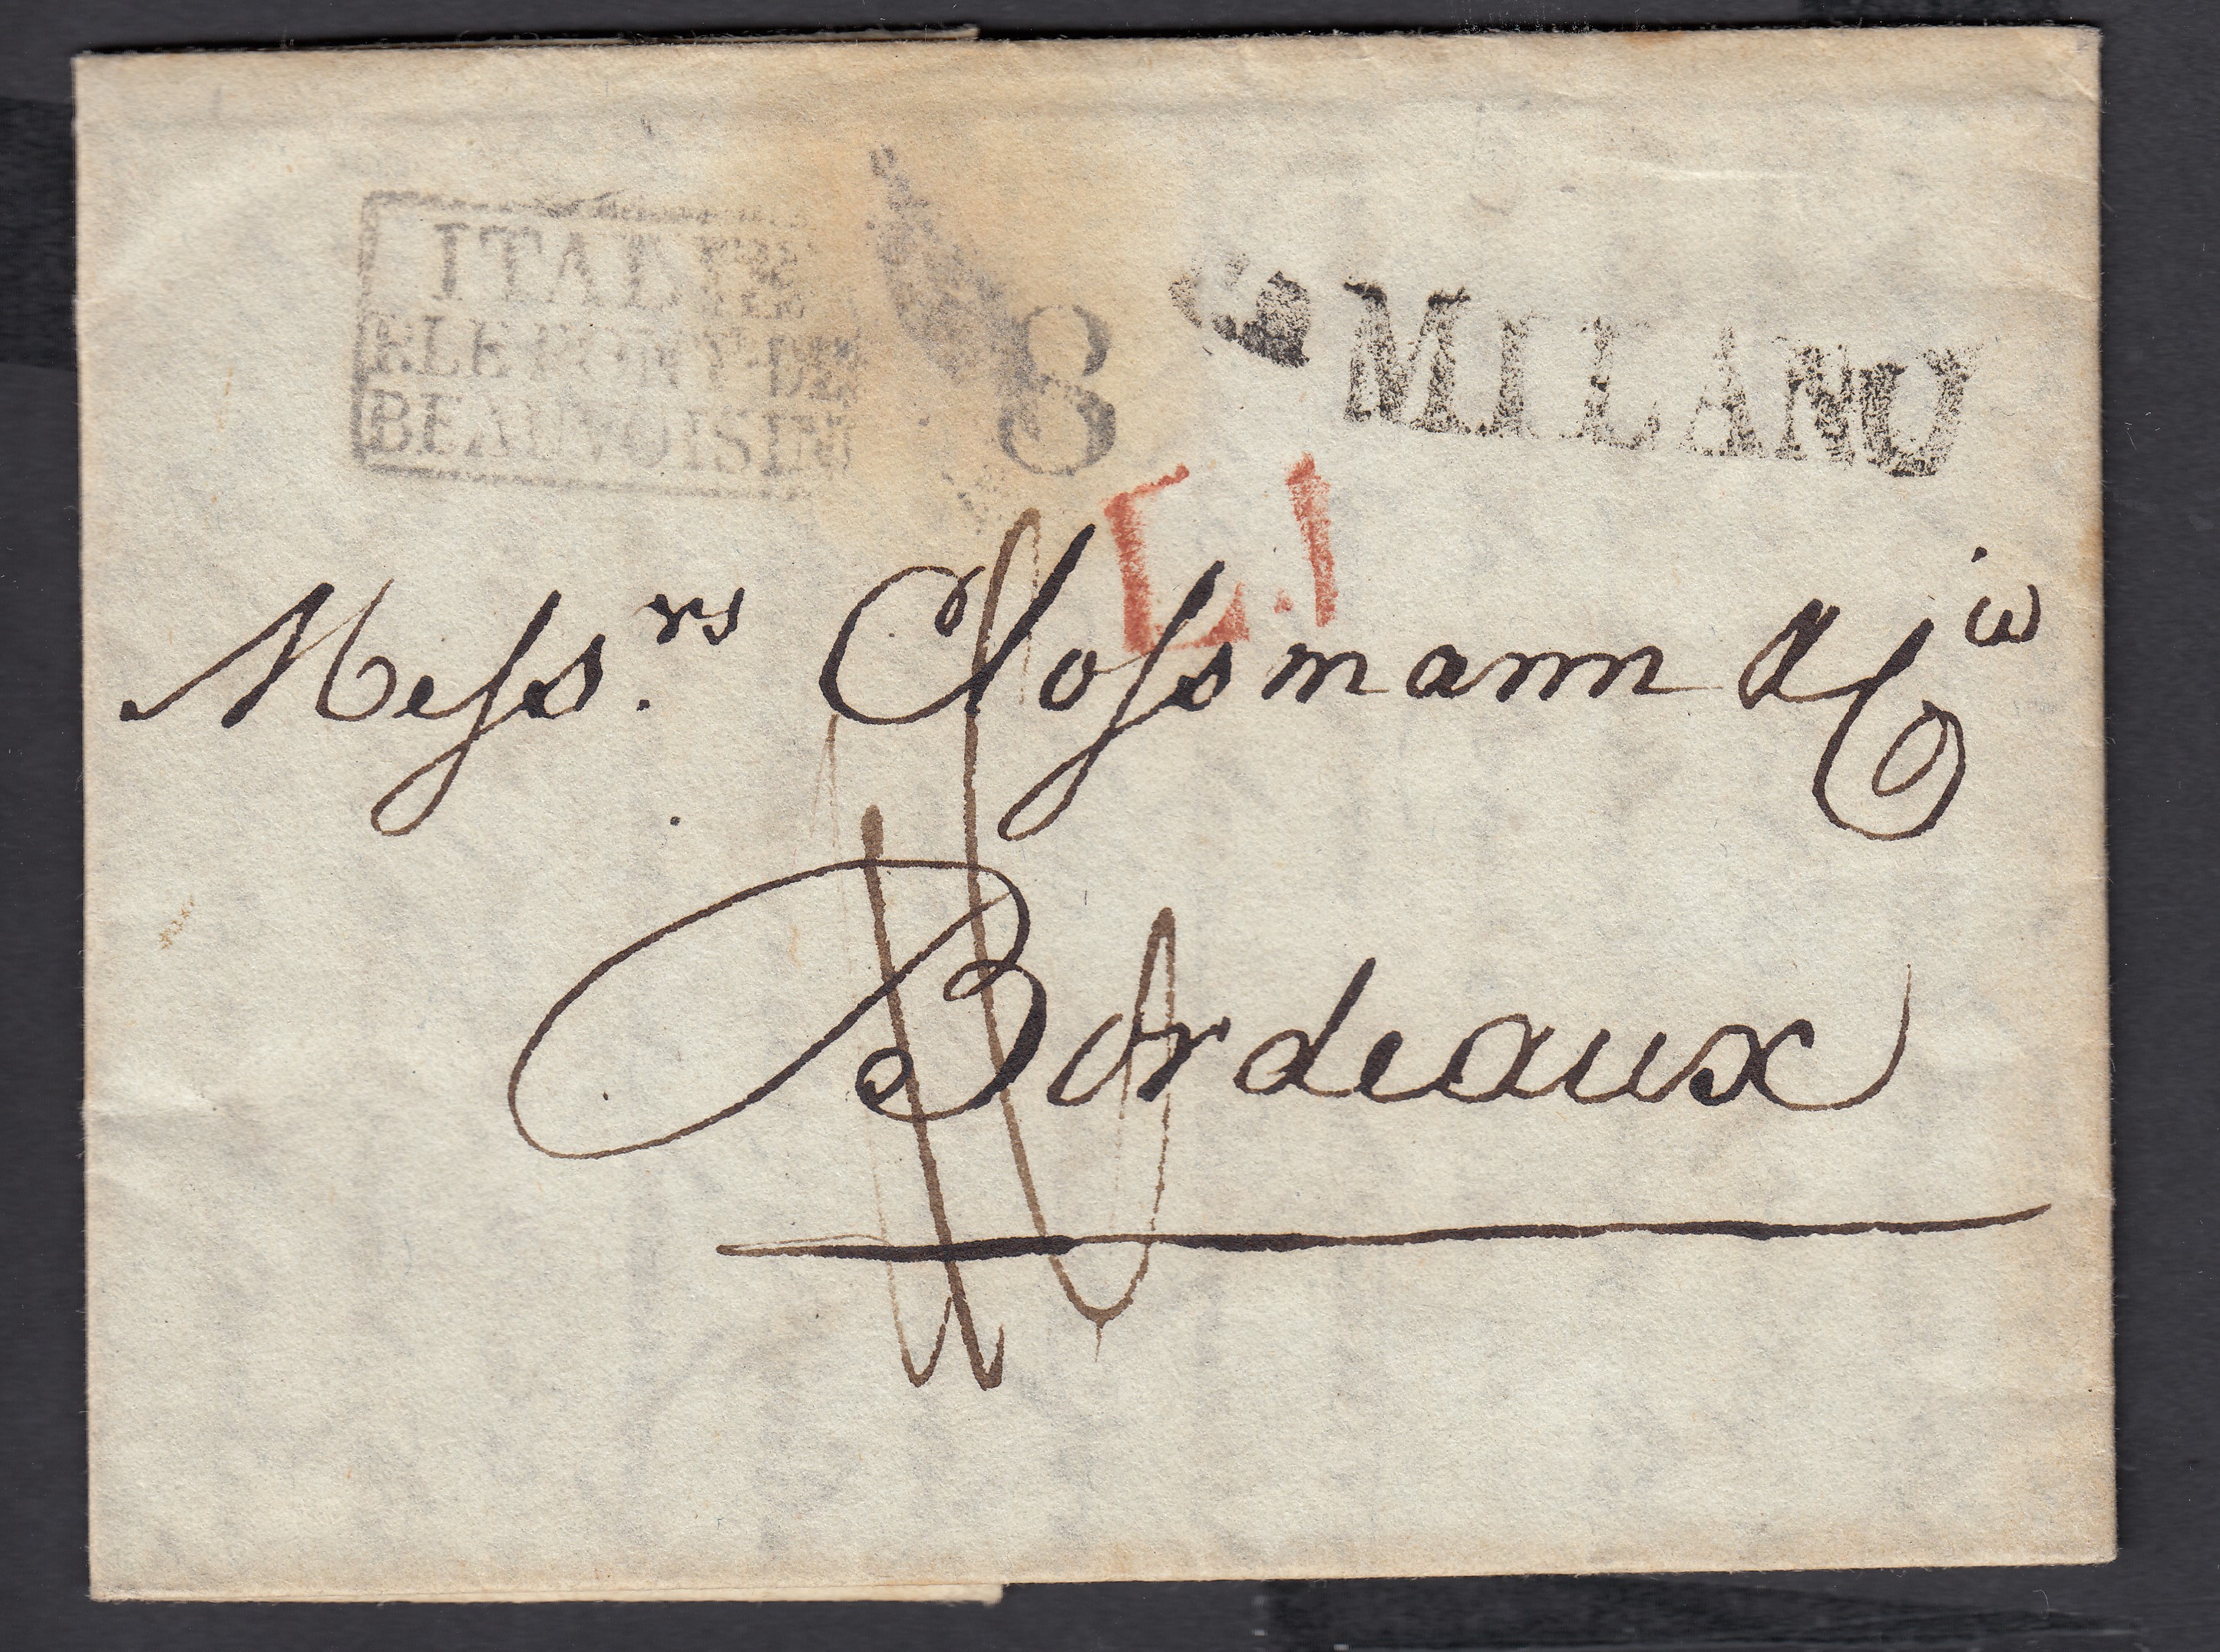 ITALIE
P.LE PONT-DE
BEAUVOISIN
8
MILANO
L.I
Mess.rs Clossmann & Cie
Bordeaux